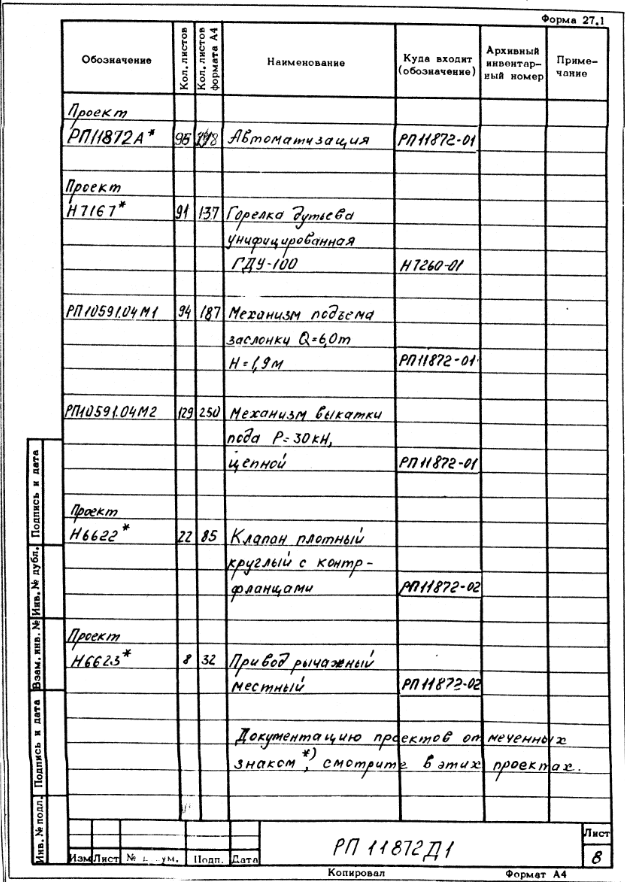 Форма 27.1
Обозначение
Кол. листов
Кол. листов формата А4
Наименование
Куда входит (обозначение)
Архивный инвентарный номер
Примечание
Проект
РП11872А* 95 Автоматизация РП11872-01
Проект
Н7167* 91 137 Горелка дутьева
унифицированная
ГДУ-100 Н7260-01
РП10591.04М1 94 187 Механизм подъема
заслонки Q=6,0т
Н=1,9м РП11872-01
РП10591.04М2 129 250 Механизм выкатки
пода Р=30кН,
цепной РП11872-01
Проект
Н6622* 22 85 Клапан плотный
круглый с контр-
фланцами РП11872-02
Проект
Н6623* 8 32 Привод рычажный
местный РП11872-02
Документацию проектов отмеченных
знаком *), смотрите в этих проектах.
Подпись и дата
Инв. № дубл.
Взам. инв. №
Подпись и дата
Инв. № подл.
Изм Лист Подп. Дата
РП 11872Д1
Лист
8
Копировал Формат А4